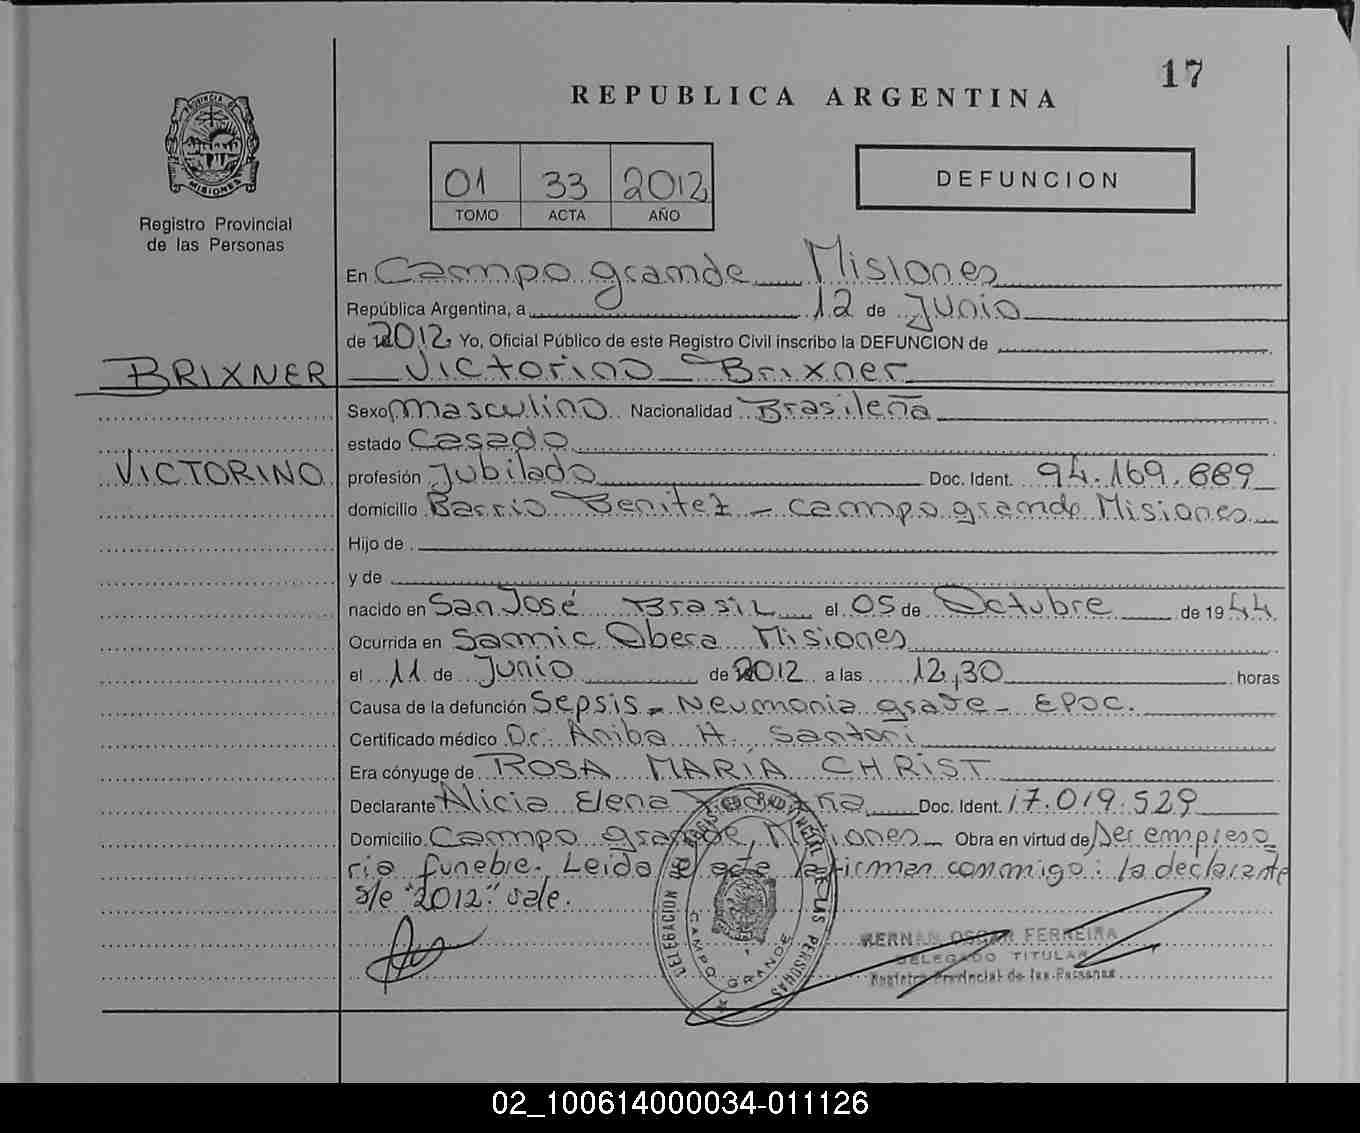 17
REPUBLICA ARGENTINA
PROVINCIA DE
MISIONES
Registro Provincial
de las Personas
01 33 2012
TOMO ACTA AÑO
DEFUNCION
En Campo grande Misiones
República Argentina, a 12 de Junio
de 2012. Yo, Oficial Público de este Registro Civil inscribo la DEFUNCION de
BRIXNER Victorino Brixner
Sexo Masculino Nacionalidad Brasileña
estado Casado
VICTORINO profesión Jubilado Doc. Ident. 94.169.889
domicilio Barrio Benitez - campo grande Misiones
Hijo de
y de
nacido en San José Brasil el 05 de Octubre de 1944
Ocurrida en Samic Obera Misiones
el 11 de Junio de 2012 a las 12,30 horas
Causa de la defunción Sepsis - Neumonia grave - EPOC.
Certificado médico Dr. Aniba H. Santori
Era cónyuge de ROSA MARIA CHRIST
Declarante Alicia Elena Doc. Ident. 17.019.529
Domicilio Campo grande, Misiones Obra en virtud de Ser empresa
ria funebre. Leida el acta la firman conmigo: la declarante
s/e "2012" vale.
DELEGACION DEL REGISTRO PROVINCIAL DE LAS PERSONAS
CAMPO GRANDE
HERNAN OSCAR FERREIRA
DELEGADO TITULAR
Registro Provincial de las Personas
02_100614000034-011126